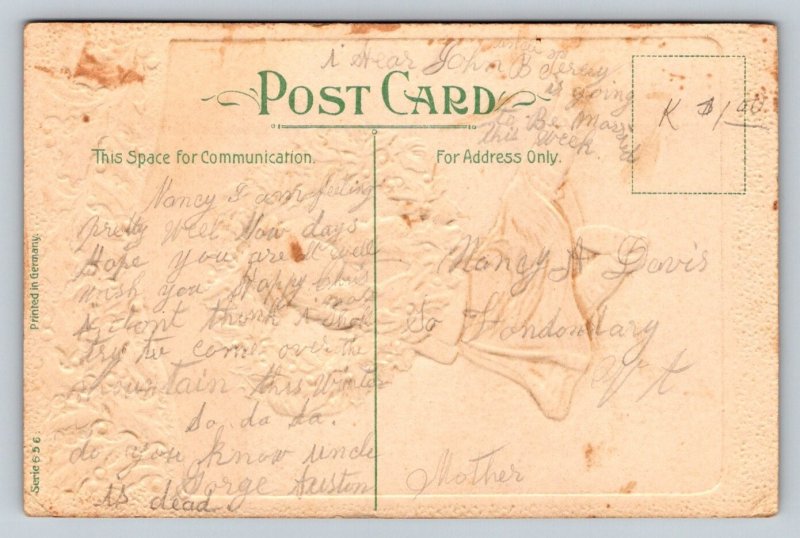 I Hear John B
is going
to Be Married
this week.
K $1.00
POST CARD
This Space for Communication.
For Address Only.
Nancy I am feeling
pretty well Now days
Hope you are all well
wish you Happy Chris
mas
I dont think I shal
try to come over the
Mountain this Winter
So da da.
do you know uncle
Gorge Auston
is dead
Nancy A Davis
So Londondary
Vt
Mother
Printed in Germany.
Serie 656